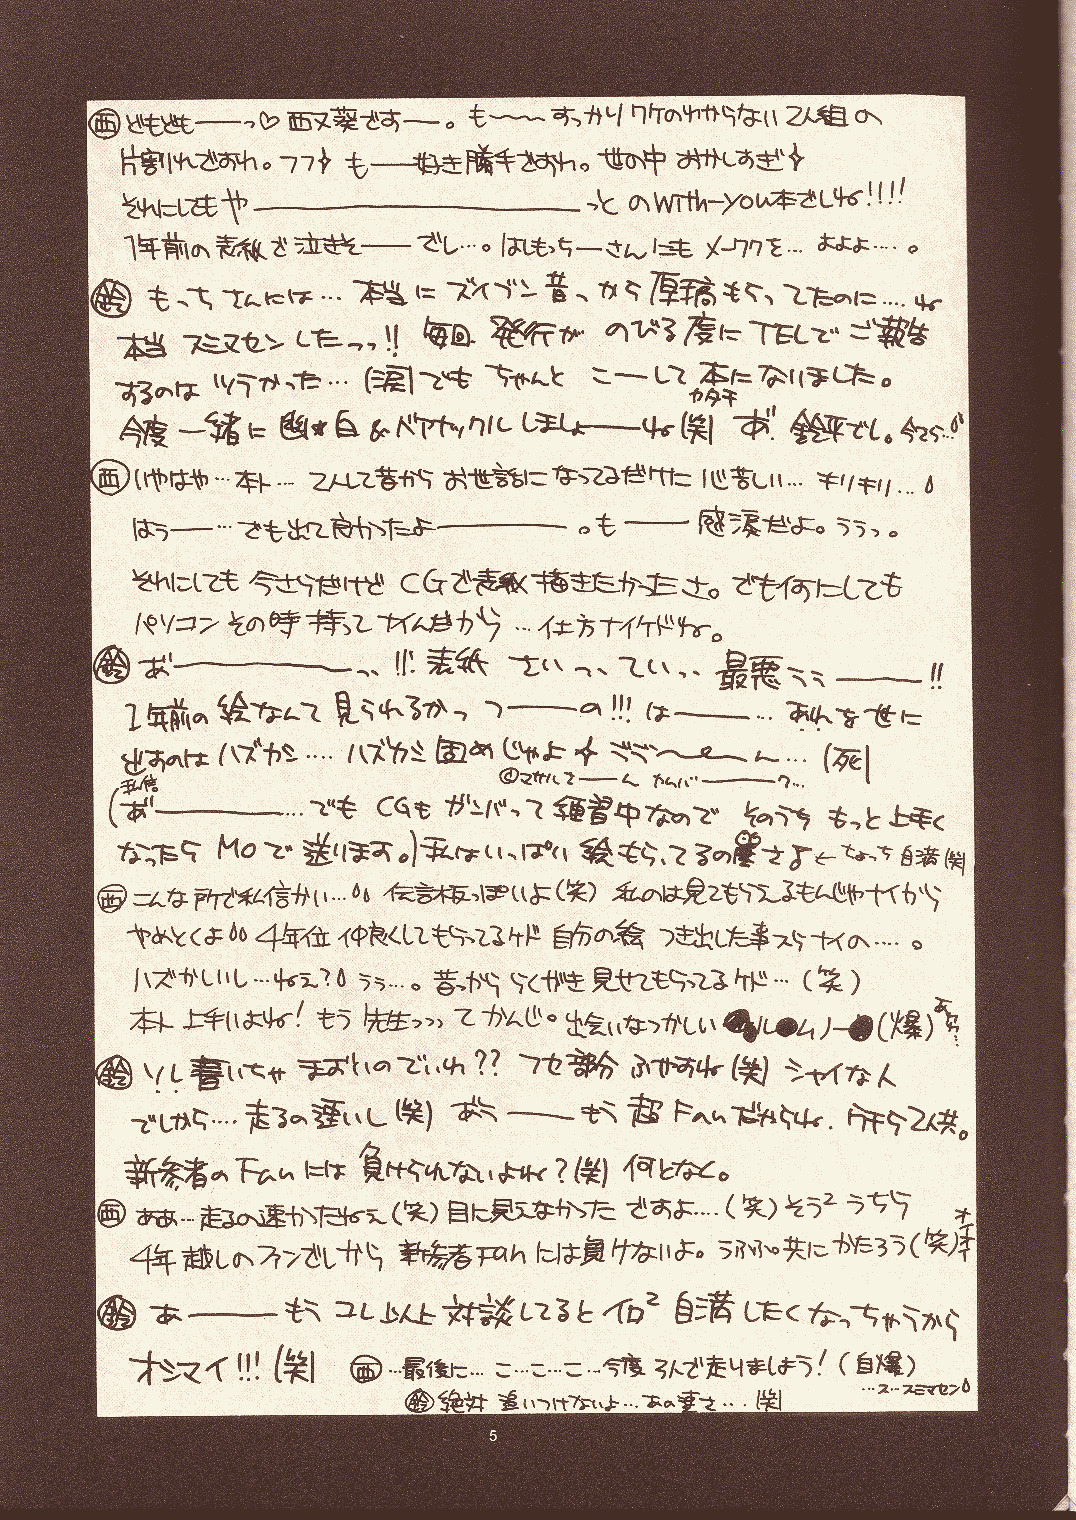 ㊄ どもども――っ♡ 西又葵です―。も～～すっかりワケのわからない2人組の
片割れでおわ。フフ✧ も――好き勝手でおわ。世の中おかしすぎ✧
それにしてもや――――――――っと のwith-you本でしね!!!!
1年前の表紙で泣きそ――でし…。はしもっちーさんにも メーワクを… よよよ…。
㊕ もっちさんには… 本当に ズイブン昔っから 原稿もらってたのに…. ね
本当 スミマセンしたっっ!! 毎回 発行が のびる度に TELで ご報告
するのは ツラかった… (涙) でも ちゃんと こーして 本に なりました。
カタチ
今度 一緒に 幽★白 & バヤナックル しましょ――ね(笑) あ゛. 鈴平でし。今さら…
㊄ いやはや… 本ト… 2人して昔から お世話に なってるだけに 心苦しい… キリキリ…
はぅ――… でも出て良かったよ――――。も――感涙だよ。ううっ。
それにしても 今さらだけど CGで表紙 描きたかったさ。でも何にしても
パソコン その時 持って ナイんだから … 仕方ナイケドね。
㊕ あ゛――――っっ!!! 表紙 さいっっていっっ 最悪 うぅ――!!
1年前の 絵なんて 見られるかっ つ――の!!! は――… あれを世に
出すのは ハズカシ…. ハズカシ固めじゃよ✧ ごご～～ん… (死)
私信
(あ゛――――… でも CGも ガンバって 練習中なので そのうち もっと上手く
なったら MOで 送ります。) 私はいっぱい 絵もらってるの さよ ← ちょっち 自満(笑)
㊄ こんな所で私信かい… 伝言板っぽいよ(笑) 私のは見てもらえるもんじゃナイから
やめとくよ 4年位 仲良くしてもらってるケド 自分の絵 つき出した事スラ ナイの…。
ハズかしいし…ねぇ? うぅ…。昔っから らくがき 見せてもらってる ケド… (笑)
本ト 上手いよね! もう 先生っっっ て かんじ。出会いなつかしい ●ル●ムノー● (爆)
㊕ ソレ 書いちゃ まずいのでわ?? フセ部分 ふやすね(笑) シャイな人
でしから…. 走るの遅いし(笑) あう―― もう 超 Fanだからね. ウチら2人共。
新参者の Fanには 負けられないよね?(笑) 何となく。
㊄ ああ… 走るの速かったねぇ(笑) 目に見えなかった ですよ…. (笑) そう² うちら
4年越しのファンでしから 新参者Fanには負けないよ。うふふ。共に かたろう(笑)
オイオイ
㊕ あ――― もう コレ以上 対談してると イロ² 自満 したくなっちゃうから
オシマイ!!! (笑) ㊄ …最後に… こ…こ…こ…今度 3人で走りましょう! (自爆)
…ス…スミマセン
㊕ 絶対 追いつけないよ… あの速さ… (笑)
5